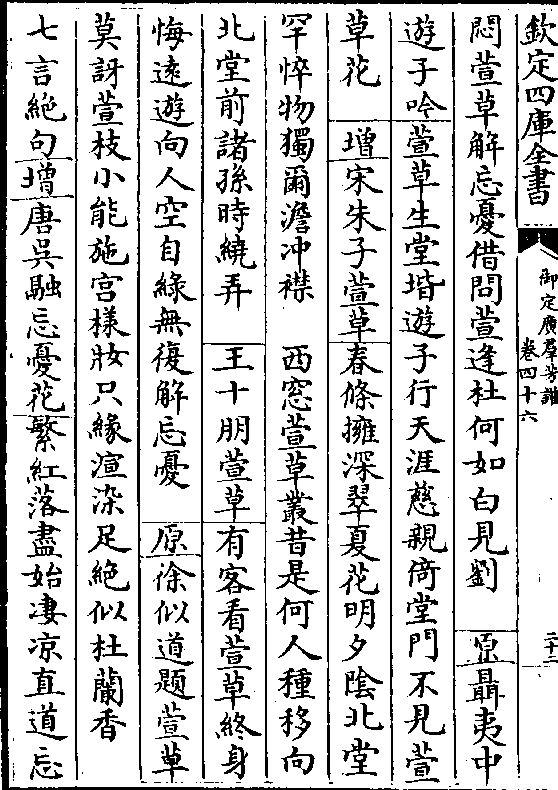 欽定四庫全書
御定廣羣芳譜
卷四十六
二十三
悶萱草解忘憂借問萱逢杜何如白見劉 原聶夷中
遊子吟萱草生堂堦遊子行天涯慈親倚堂門不見萱
草花 增宋朱子萱草春條擁深翠夏花明夕陰北堂
罕悴物獨爾澹冲襟 西窓萱草叢昔是何人種移向
北堂前諸孫時繞弄 王十朋萱草有客看萱草終身
悔遠遊向人空自綠無復解忘憂 原徐似道題萱草
莫訝萱枝小能施宫様妝只緣渲染足絶似杜蘭香
七言絶句增唐吳融忘憂花繁紅落盡始凄凉直道忘